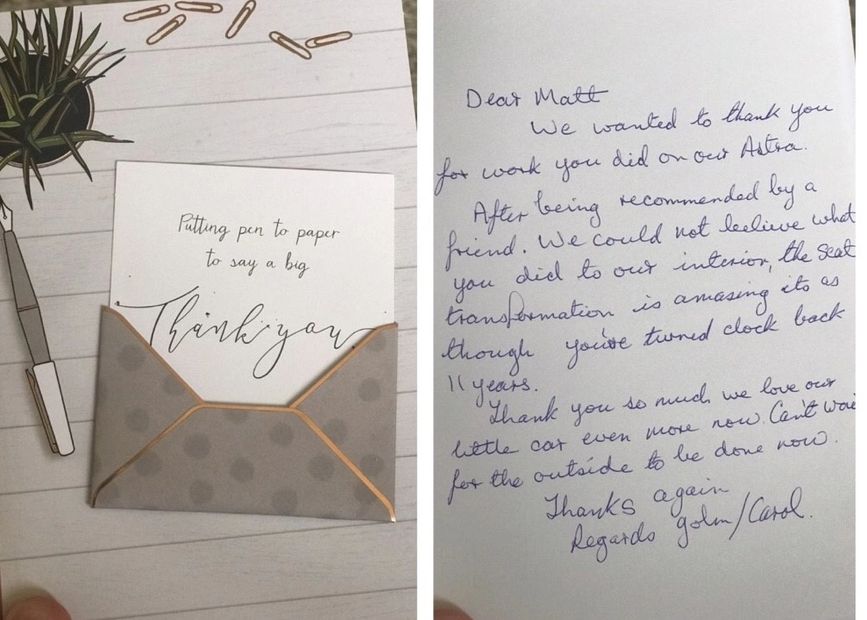 Putting pen to paper
to say a big
Thank you
Dear Matt
We wanted to thank you
for work you did on our Astra.
After being recommended by a
friend. We could not beelieve what
you did to our interior, the seat
transformation is amasing its as
though you've turned clock back
11 years.
Thank you so much we love our
little car even more now. Can't wai
for the outside to be done now.
Thanks again
Regards John/Carol.